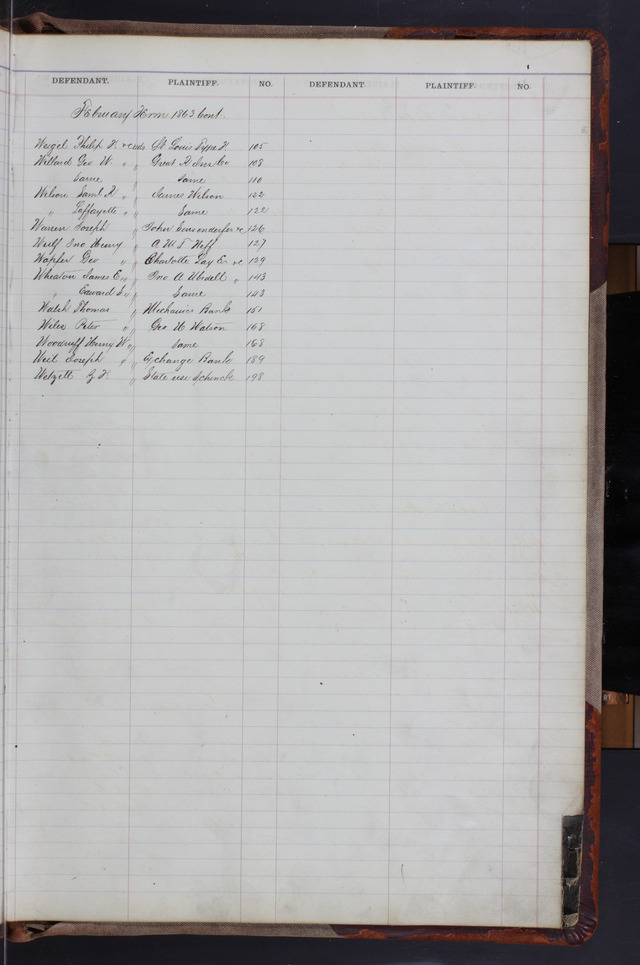 DEFENDANT. PLAINTIFF. NO. DEFENDANT. PLAINTIFF. NO.
February Term 1863 Cont.
Weigel Philip St Louis Type F 105
Willard Geo W " " Great R Ins Co 108
Same " Same 110
Wilson Saml " " James Wilson 122
" Laffayette " " Same 122
Warren Joseph " John 126
Wulf Jno Henry " A W Neff 127
Wapler Geo " " Charlotte Lay 139
Wheaton James E " " Jno A Ubsdell " 143
" Edward " " Same 143
Walsh Thomas " Mechanics Bank 151
Wiles Peter " " Geo H Watson 168
Woodruff Henry W " " Same 168
Weil Joseph " " Exchange Bank 189
Wetzell " State use Schenck 198